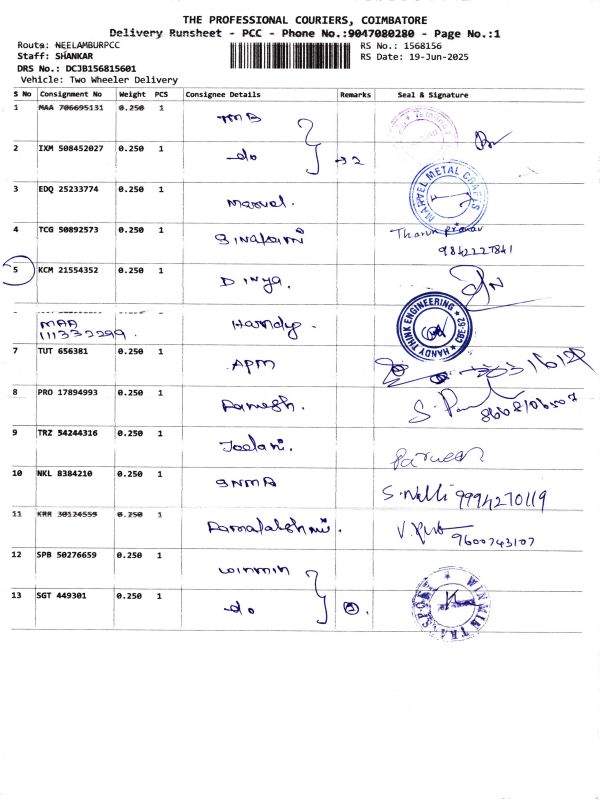 THE PROFESSIONAL COURIERS, COIMBATORE
Delivery Runsheet - PCC - Phone No.:9047080280 - Page No.:1
Route: NEELAMBURPCC
RS No.: 1568156
Staff: SHANKAR
RS Date: 19-Jun-2025
DRS No.: DCJB156815601
Vehicle: Two Wheeler Delivery
S No Consignment No Weight PCS Consignee Details Remarks Seal & Signature
1 MAA 706695131 0.250 1 TMB
2 IXM 508452027 0.250 1 do →2
3 EDQ 25233774 0.250 1 Marvel. MARVEL METAL CRAFTS
4 TCG 50892573 0.250 1 Sivatami Tharun Pranav
9842227841
5 KCM 21554352 0.250 1 Divya.
MAA 111332299. Handy. HANDY THINK ENGINEERING CBE-62
7 TUT 656381 0.250 1 APM
8 PRO 17894993 0.250 1 Ramesh.
9 TRZ 54244316 0.250 1 Jeelani. Parveen
10 NKL 8384210 0.250 1 SNMA S.Nalli 9994270119
11 KRR 30124559 0.250 1 Ramalakshmi. 9600743107
12 SPB 50276659 0.250 1 winmin
13 SGT 449301 0.250 1 do ②. WINMIN TRANSPORT